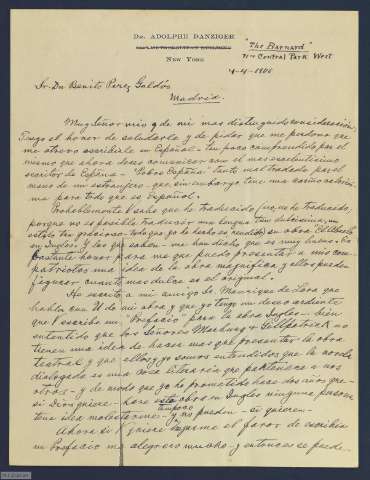 Dr. Adolphe Danziger
New York
"The Barnard"
Central Park West
4-4-1901
Sr Dn Benito Perez Galdós
Madrid.
Muy Señor mio y de mi mas distinguida consideración,
Tengo el honor de saludarle y de pedir que me perdone que
me atrevo escribirle en Español - tan poco comprendido por el
mismo que ahora deseo comunicar con el mas excelentisimo
escritor de España - Pobre España! tanto maltratado por el
mano de un extranjero - que sin embargo tiene una cariño
para todo que es español.
Probablemente V sabe que he traducido (no, no he traducido,
porque no es posible traducir una lengua tan dulcisima, un
estilo tan gracioso todo que yo he hecho es) su obra
en Ingles. Y los que saben - me han dicho que es muy bueno. Es
bastante honor para me que puedo presentar a mis com-
patriotas una idea de la obra magnifica y ellos pueden
figurar cuanto mas dulce es el original.
He escrito a mi amigo de Manrique de Lara que
habla que U de mi años y que yo tengo un deseo ardiente
que V escribe un "Prefacio" para la obra Ingles - bien
entendido que los Señores Marburg y Gillpatrick no
tienen una idea de hacer mas que presentar la obra
teatral y que ellos y yo somos entendidos que la novela
dialogada es una cosa libraria que pertenece a nos
otros - y de modo que yo he prometido hace dos años que -
si Dios quiere - hare esta obra en Ingles ninguna persona
tiene idea molestarme - y tampoco no pueden - si quieren -
Ahora si V quiere hagarme el favor de escribir
un Prefacio me alegrero mucho - y entonces se puede